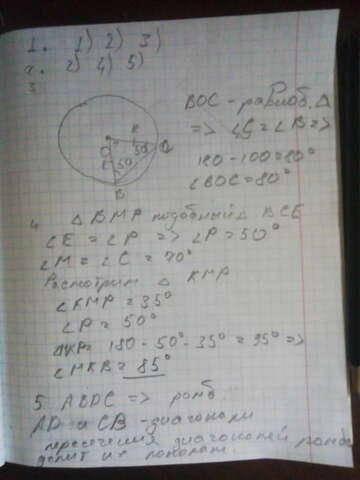 1. 1) 2) 3)
2. 2) 4) 5)
3
BOC - равноб. Δ
=> ∠C = ∠B =>
180 - 100 = 80°
∠BOC = 80°
R
O
50
50°
B
4 Δ BMP подобный Δ BCE
∠E = ∠P => ∠P = 50°
∠M = ∠C = 70°
Расмотрим Δ KMP
∠KMP = 35°
∠P = 50°
180 - 50° - 35° = 95° =>
∠MKB = 85°
5. ABDC => ромб.
AD и CB - диагонали
пересечения диагоналей ромба
делит их пополам.